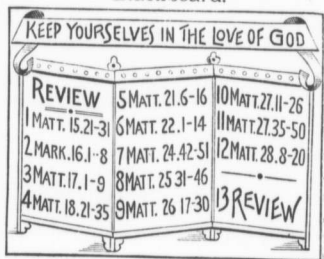 KEEP YOURSELVES IN THE LOVE OF GOD
REVIEW
1 MATT. 15.21-31
2 MARK. 16.1-8
3 MATT. 17.1-9
4 MATT. 18.21-35
5 MATT. 21.6-16
6 MATT. 22.1-14
7 MATT. 24.42-51
8 MATT. 25 31-46
9 MATT. 26 17-30
10 MATT. 27.11-26
11 MATT. 27.35-50
12 MATT. 28.8-20
13 REVIEW